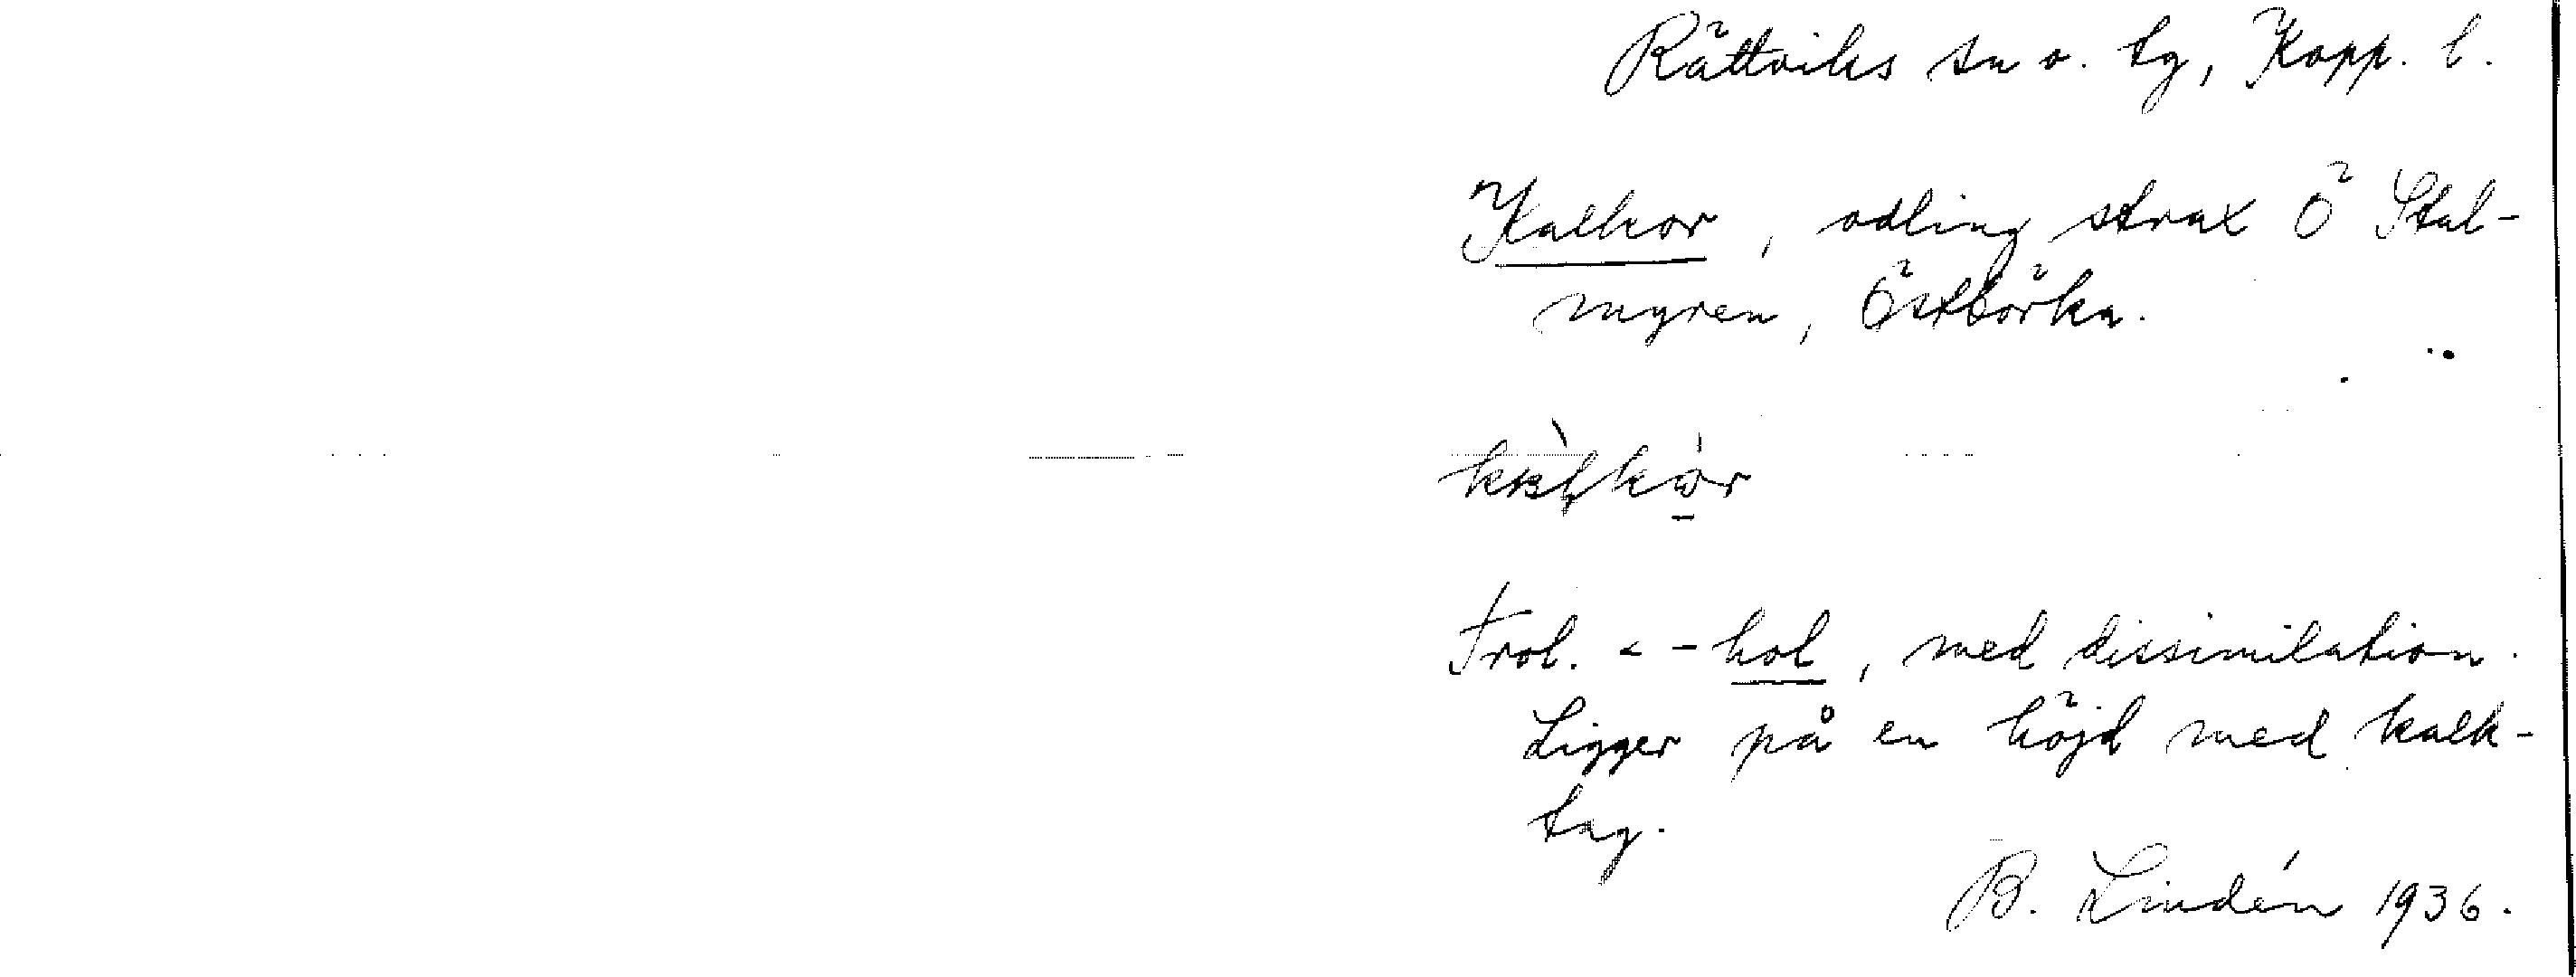 Rättviks sn o. tg, Kopp. l.
Kalkor, odling strax Ö Stal-
myren, Östbörka.
Trol. < -hol, med dissimilation.
Ligger på en höjd med kalk-
tag.
B. Lindén 1936.